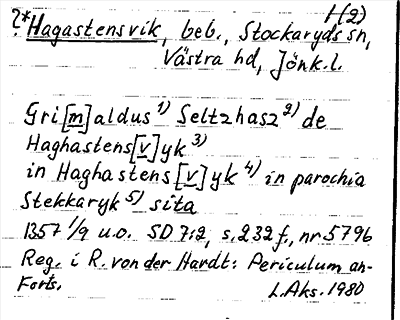 1(2)
?*Hagastensvik, beb., Stockaryds sn,
Västra hd, Jönk.l.
Gri[m]aldus 1) Seltzhasz 2) de
Haghastens[v]yk 3)
in Haghastens[v]yk 4) in parochia
Stekkaryk 5) sita
1357 1/9 u.o. SD 7:2, s.232 f., nr 5796
Reg. i R. von der Hardt: Periculum an-
Forts. L.Aks. 1980